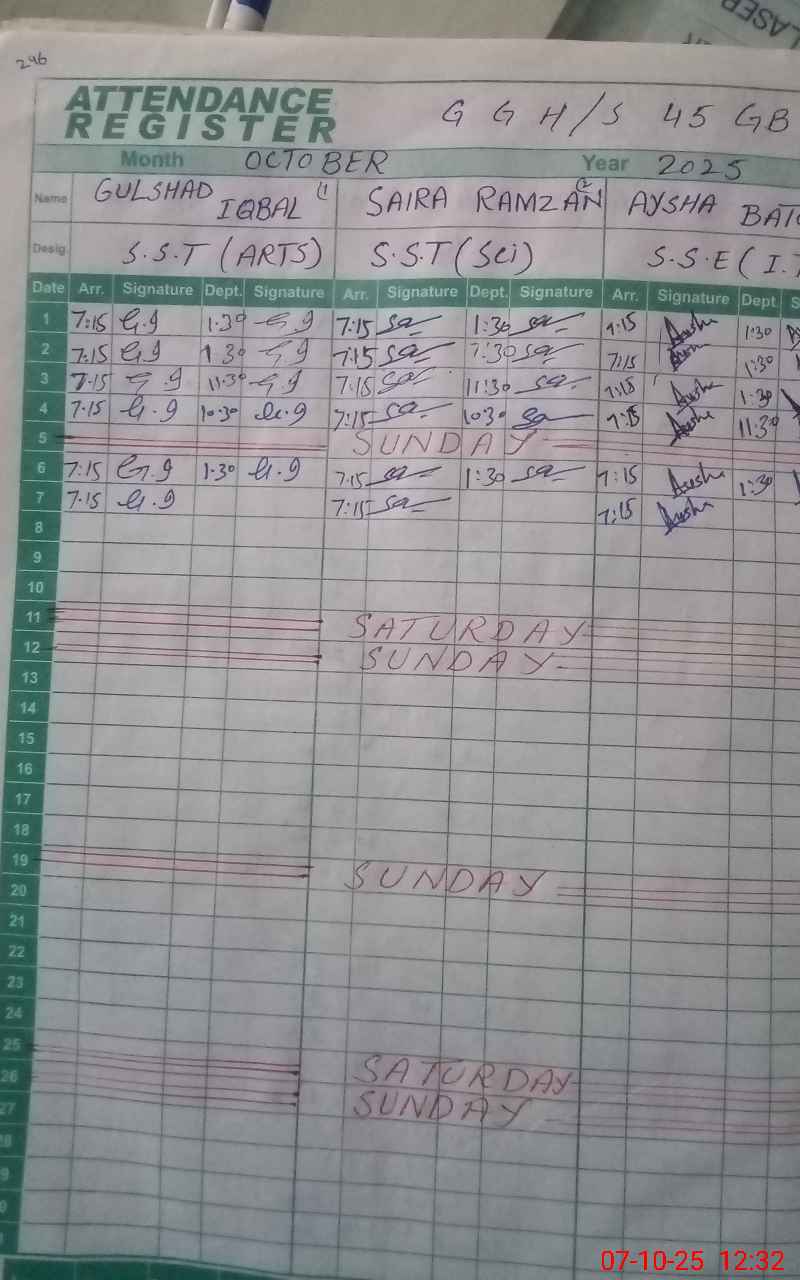 296
LASER
ATTENDANCE
REGISTER
G G H/S 45 GB
Month OCTOBER Year 2025
Name GULSHAD IQBAL (1 SAIRA RAMZAN AYSHA
Desig. S.S.T (ARTS) S.S.T (Sci) S.S.E (I.T
Date Arr. Signature Dept. Signature Arr. Signature Dept. Signature Arr. Signature Dept.
1 7:15 G.9 1:30 G.9 7:15 sa 1:30 sa 7:15 Aysha 1:30
2 7:15 G.9 1:30 G.9 7:15 sa 1:30 sa 7:15 Aysha 1:30
3 7:15 G.9 11:30 G.9 7:15 sa 11:30 sa 7:15 Aysha 1:30
4 7:15 G.9 10:30 G.9 7:15 sa 10:30 sa 7:15 Aysha 11:30
5 SUNDAY
6 7:15 G.9 1:30 G.9 7:15 sa 1:30 sa 7:15 Aysha 1:30
7 7:15 G.9 7:15 sa 7:15 Aysha
8
9
10
11 SATURDAY
12 SUNDAY
13
14
15
16
17
18
19 SUNDAY
20
21
22
23
24
25 SATURDAY
26 SUNDAY
27
07-10-25 12:32